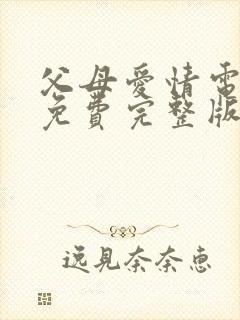 父母愛情電
免費完整版
逸見奈奈惠